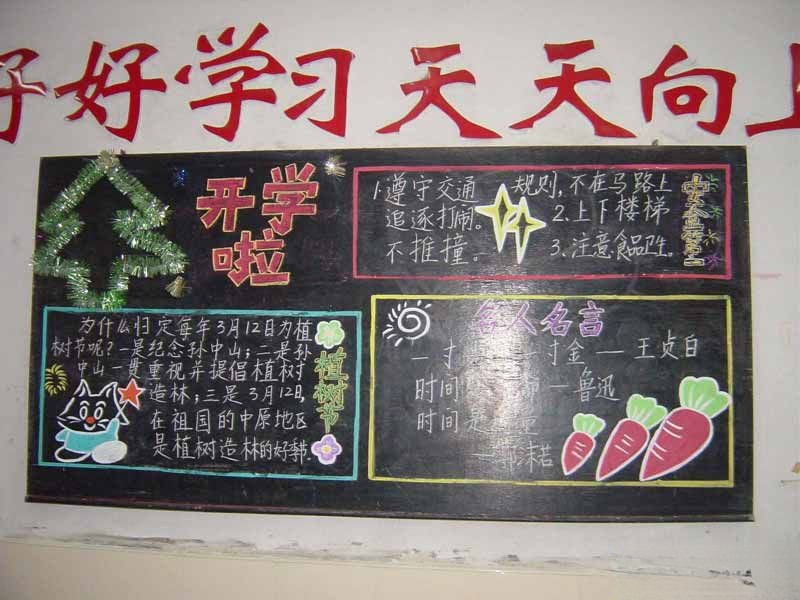 好好学习天天向上
开学
啦
1.遵守交通规则,不在马路上
追逐打闹。2.上下楼梯
不推撞。3.注意食品卫生。
安全
为什么归定每年3月12日为植
树节呢?一是纪念孙中山;二是孙
中山一重视并提倡植树
造林;三是3月12日,
在祖国的中原地区
是植树造林的好季
植树节
名人名言
一寸金—王贞白
时间—鲁迅
时间是
沫若